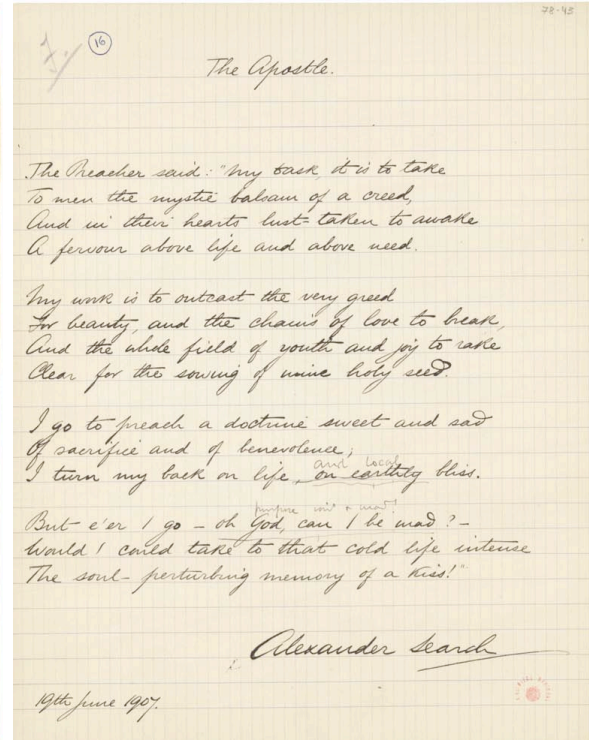 78-42
16
The Apostle.
The Preacher said: "My task, it is to take
To men the mystic balsam of a creed,
And in their hearts lust-taken to awake
A fervour above life and above need.
My work is to outcast the very greed
For beauty, and the chains of love to break,
And the whole field of youth and joy to rake
Clear for the sowing of mine holy seed.
I go to preach a doctrine sweet and sad
Of sacrifice and of benevolence;
and local
I turn my back on life, on earthly bliss.
purpose
But e'er I go — oh God, can I be mad? —
Would I could take to that cold life intense
The soul-perturbing memory of a kiss!"
Alexander Search
19th June 1907.